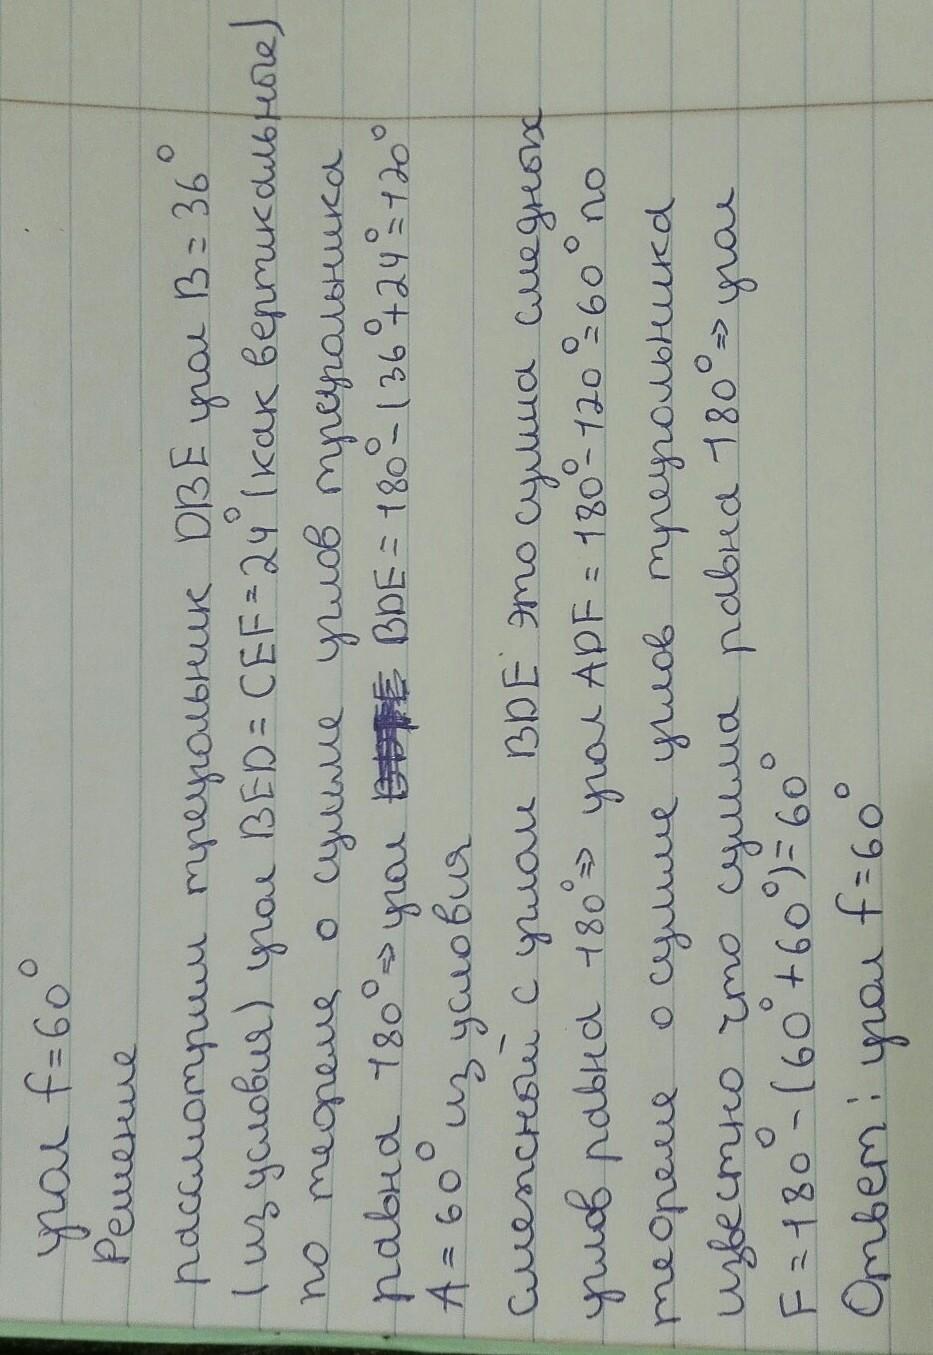 угол f = 60°
Решение
рассмотрим треугольник DBE угол B = 36°
(из условия) угол BED = CEF = 24° (как вертикальные)
по теореме о сумме углов треугольника
равна 180° => угол BDE = 180° - (36° + 24° = 120°
A = 60° из условия
Смежный с углом BDE это сумма смедных
углов равна 180° => угол ADF = 180° - 120° = 60° по
теореме о сумме углов треугольника
известно что сумма равна 180° => угол
F = 180° - (60° + 60°) = 60°
Ответ: угол f = 60°